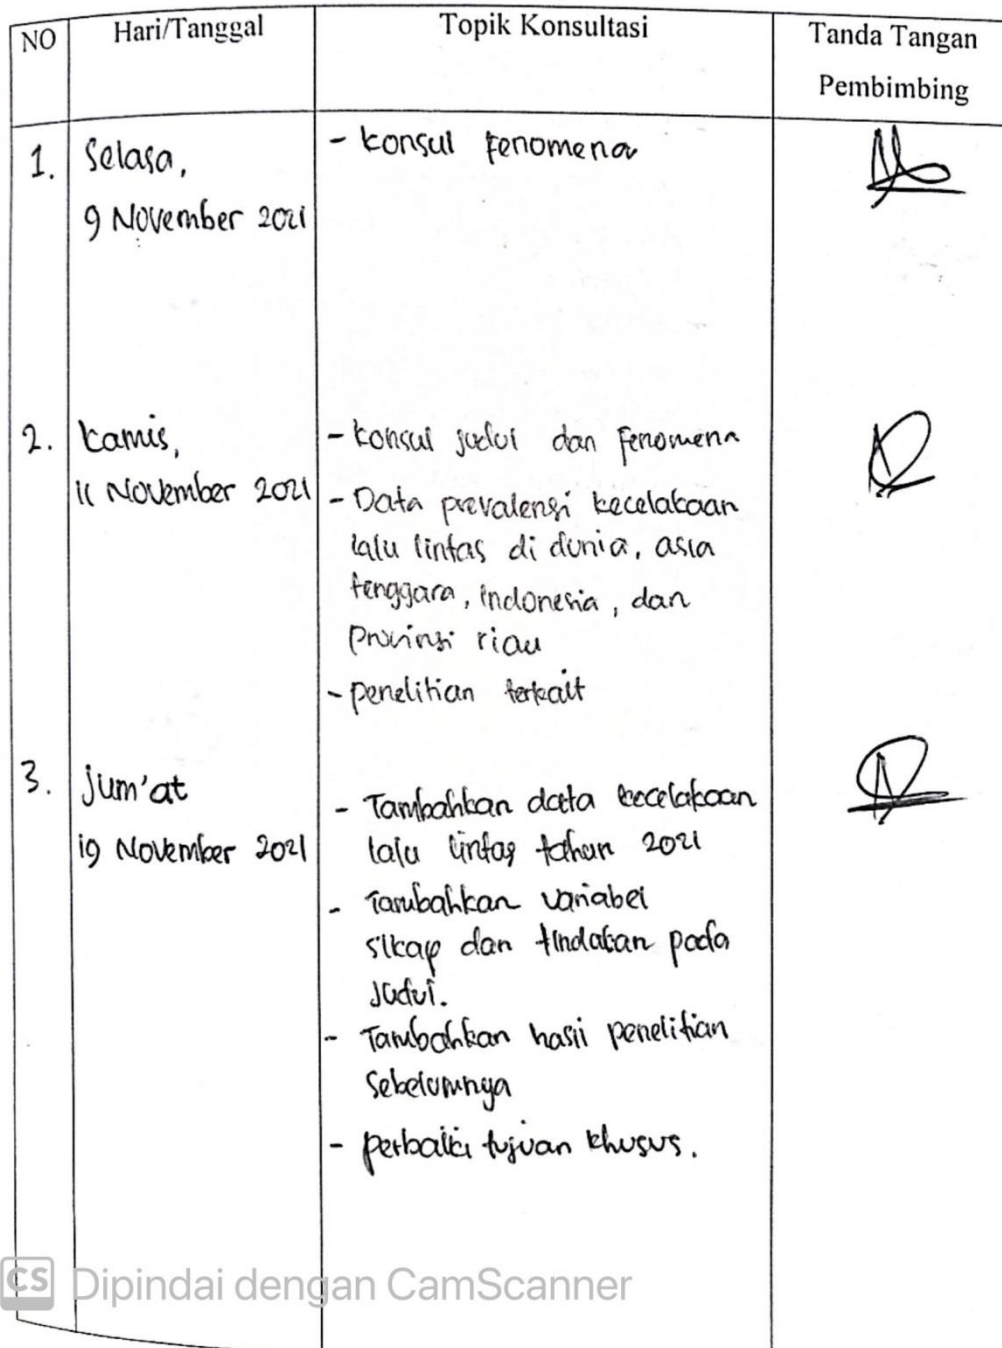 NO Hari/Tanggal Topik Konsultasi Tanda Tangan
Pembimbing
1. Selasa, - konsul fenomena
9 November 2021
2. kamis, - konsul judul dan fenomena
11 November 2021 - Data prevalensi kecelakaan
lalu lintas di dunia, asia
tenggara, indonesia, dan
provinsi riau
- penelitian terkait
3. jum'at - Tambahkan data kecelakaan
19 November 2021 lalu lintas tahun 2021
- Tambahkan variabel
sikap dan tindakan pada
judul.
- Tambahkan hasil penelitian
Sebelumnya
- perbaiki tujuan khusus.
CS Dipindai dengan CamScanner